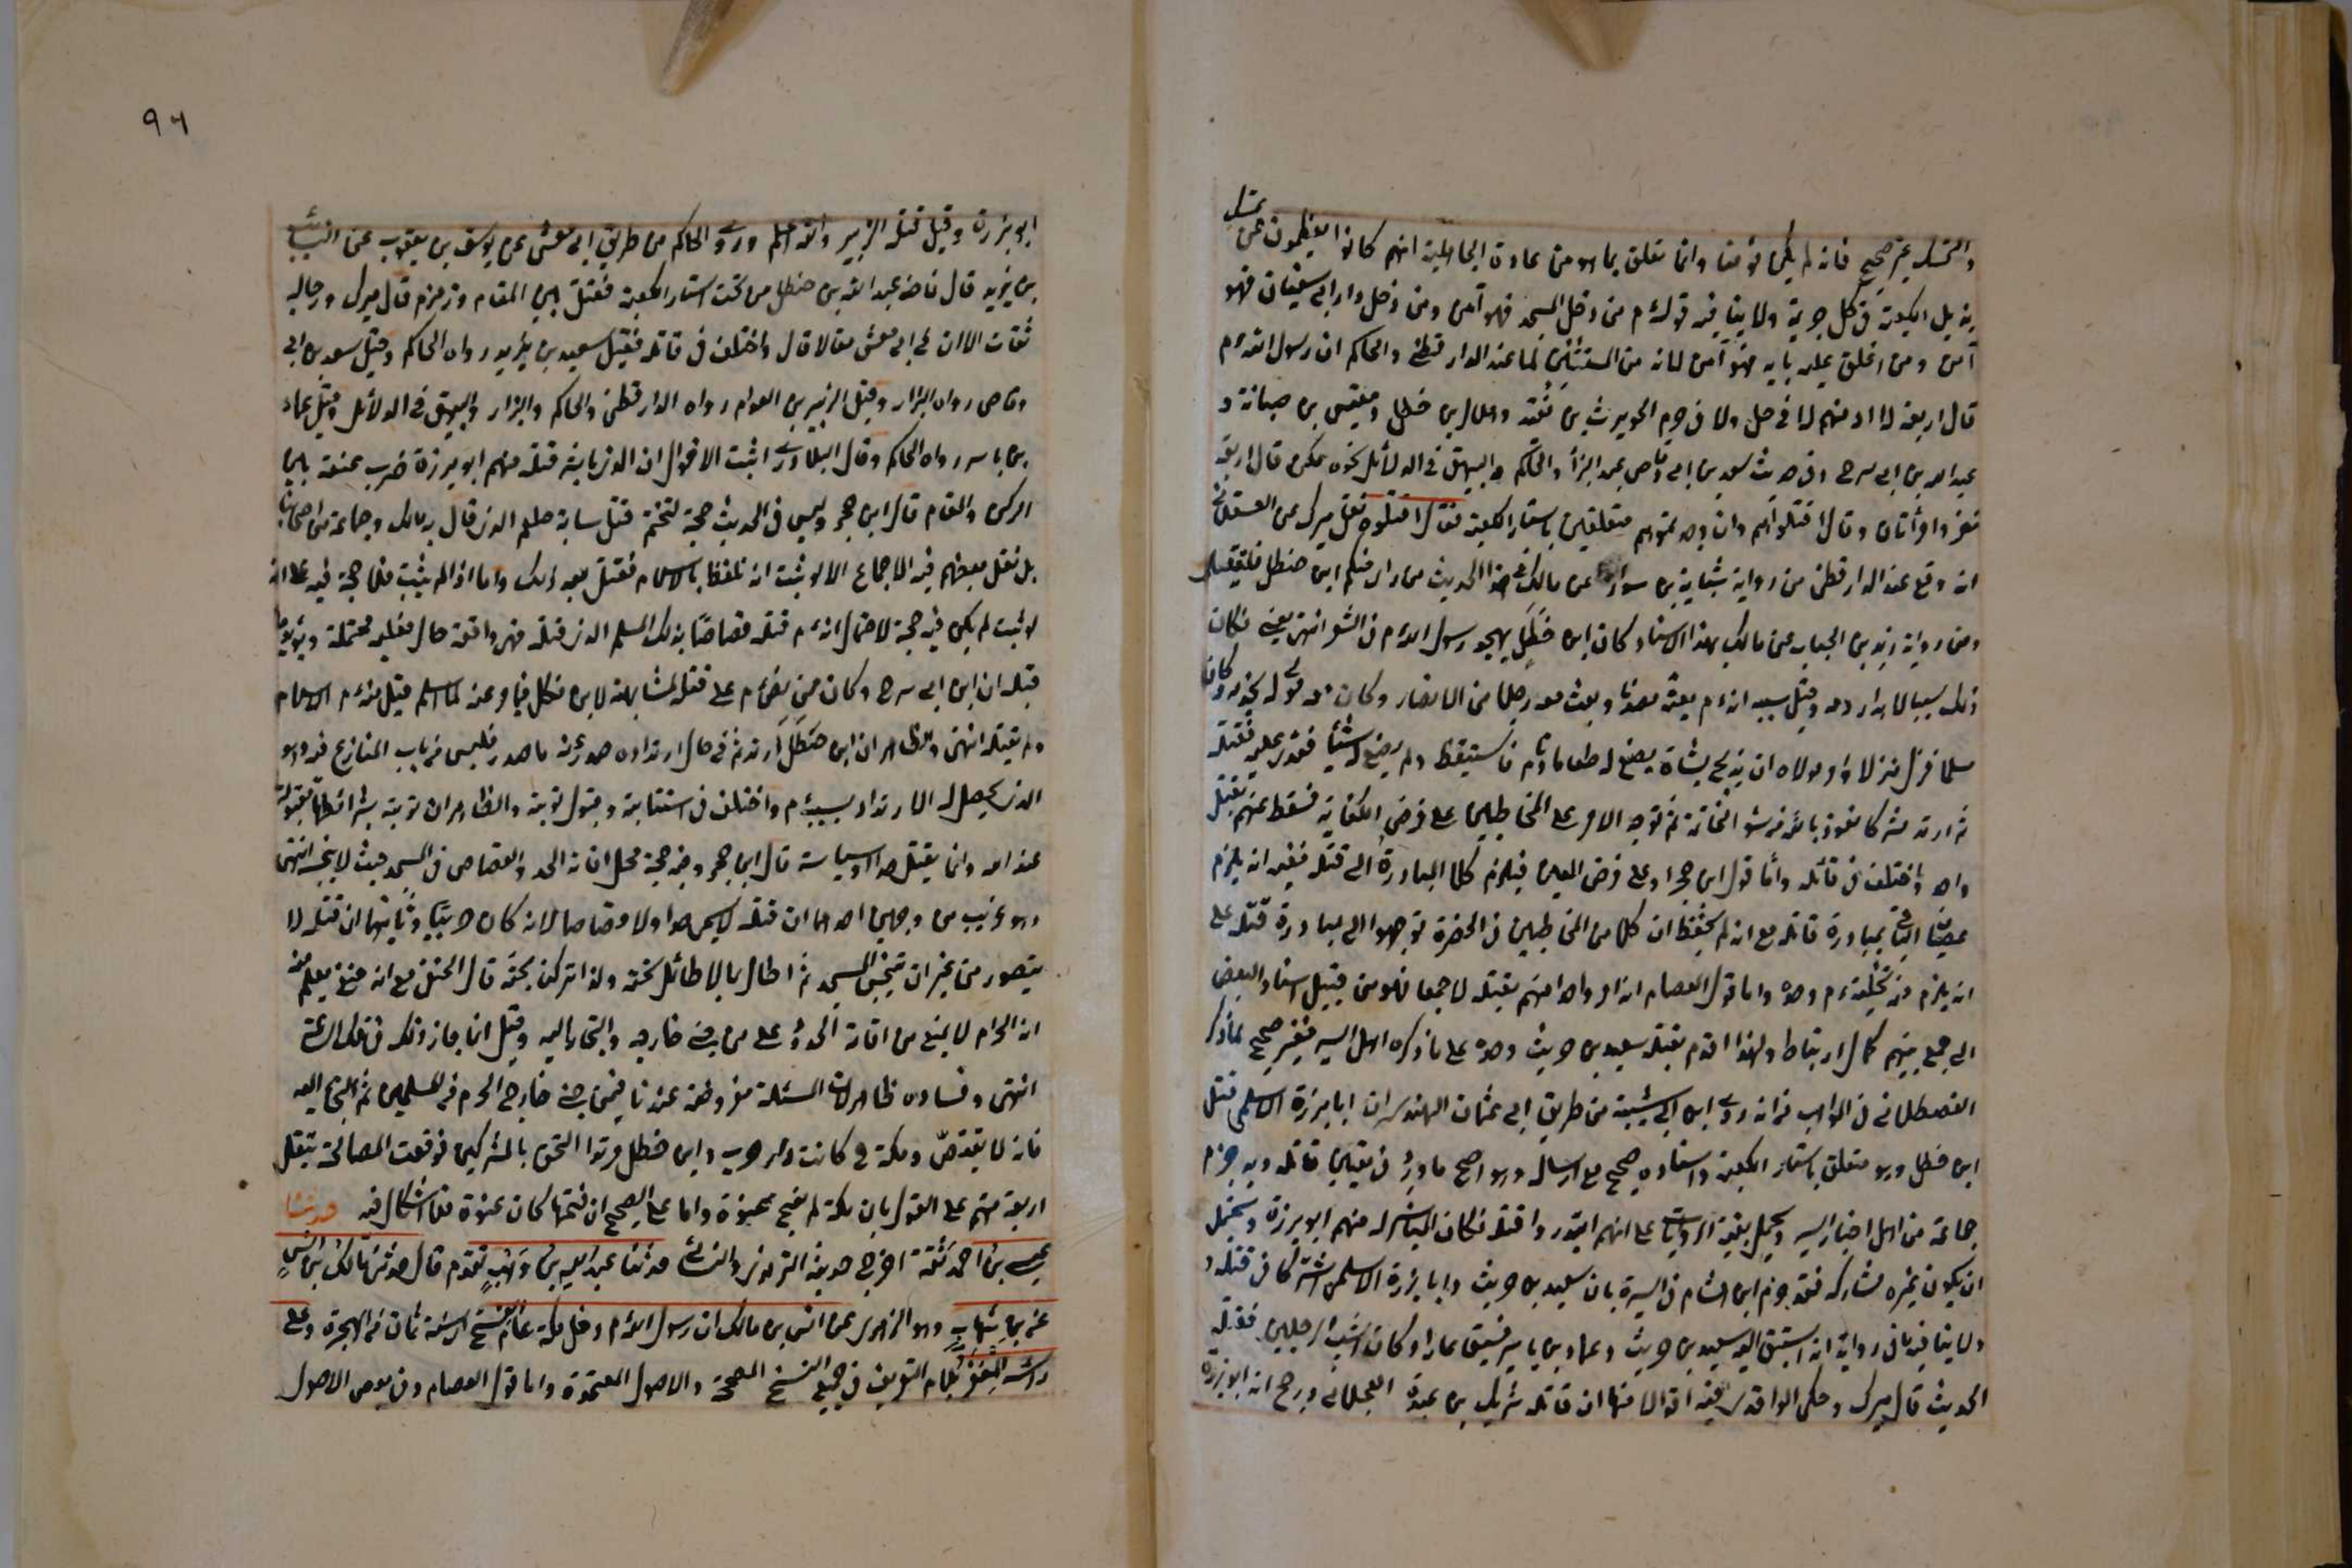 والتمسك غير صحيح فانه لم يكن مؤمنا وانما تعلق بما هو من عادة الجاهلية انهم كانوا يعظمون من تمسك
بذيل الكعبة في كل جريمة ولا ينافيه قوله م من دخل المسجد فهو آمن ومن دخل دار ابي سفيان فهو
آمن ومن اغلق عليه بابه فهو آمن لانه من المستثنين لما عند الدار قطني والحاكم ان رسول الله م
قال اربعة لا اومنهم لا في حل ولا في حرم الحويرث بن نقيد وهلال بن خطل ومقيس بن صبابة و
عبد الله بن ابي سرح وفي حديث سعد بن ابي وقاص عند البزار والحاكم والبيهقي في الدلائل نحوه لكن قال اربعة
نفر وامرأتان وقال اقتلوهم وان وجدتموهم متعلقين باستار الكعبة فقال اقتلوه نقل ميرك عن العسقلاني
انه وقع عند الدار قطني من رواية شبابة بن سوار عن مالك في هذا الحديث من راى منكم ابن خطل فليقتله
ومن رواية زيد بن الحباب عن مالك بهذا الاسناد كان ابن خطل يهجو رسول الله م في الشعر انتهى يعني فكان
ذلك سببا لاهدار دمه وقيل سببه انه م بعثه مصدقا وبعث معه رجلا من الانصار وكان معه مولى له يخدمه وكان
مسلما فنزل منزلا وامر مولاه ان يذبح شاة يصنع له طعاما ونام فاستيقظ ولم يصنع له شيئا فعدى عليه فقتله
ثم ارتد مشركا نعوذ بالله من سوء الخاتمة ثم توجه الامر على المخاطبين على فرض الكفاية فسقط عنهم بقتل
واحد واختلف في قاتله واما قول ابن حجر او على فرض العين فيلزم كلا المبادرة الى قتله ففيه انه يلزم
عصيان الباقي بمبادرة قاتله مع انه لم يحفظ ان كلا من المخاطبين في الحضرة توجهوا الى مبادرة قتله على
انه يلزم منه تخلفه م وحده واما قول العصام انه امر واحدا منهم بقتله لا جميعا فهو من قبيل اسناد البعض
الى جميع بينهم كمال ارتباط ولهذا اقدم بقتله سعيد بن حريث وحده على ما ذكره اهل السير فغير صحيح لما ذكر
القسطلاني في المواهب من انه روى ابن ابي شيبة من طريق ابي عثمان النهدي ان ابا برزة الاسلمي قتل
ابن خطل وهو متعلق باستار الكعبة واسناده صحيح مع ارساله وهو اصح ما ورد في تعيين قاتله وبه جزم
جماعة من اهل اخبار السير ويحمل بقية الروايات على انهم ابتدروا قتله فكان المباشر له منهم ابو برزة ويحتمل
ان يكون غيره شاركه فقد جزم ابن هشام في السيرة بان سعيد بن حريث وابا برزة الاسلمي اشتركا في قتله و
ولا ينافيه ما في رواية انه استبق اليه سعيد بن حريث وعمار بن ياسر فسبق عمارا وكان اشب الرجلين فقتله
الحديث قال ميرك وحكى الواقدي فيه اقوالا منها ان قاتله شريك بن عبدة العجلاني ورجح انه ابو برزة
٩٦
ابو برزة وقيل قتله الزبير والله اعلم وروى الحاكم من طريق ابي معشر عن يوسف بن يعقوب عن السائب
بن يزيد قال فاخذ عبد الله بن خطل من تحت استار الكعبة فقتل بين المقام وزمزم قال ميرك ورجاله
ثقات الا ان في ابي معشر مقالا قال واختلف في قاتله فقيل سعيد بن يربوع رواه الحاكم وقيل سعد بن ابي
وقاص رواه البزار وقيل الزبير بن العوام رواه الدار قطني والحاكم والبزار والبيهقي في الدلائل وقيل عمار
بن ياسر رواه الحاكم وقال البلاذري اثبت الاقوال ان الذي باشر قتله منهم ابو برزة ضرب عنقه بين
الركن والمقام قال ابن حجر وليس في الحديث حجة لتحتم قتل سابه صلعم الذي قال به مالك وجماعة من اصحابنا
بل نقل بعضهم فيه الاجماع الا لو ثبت انه تلفظ بالاسلام فقتل بعد ذلك واما اذا لم يثبت فلا حجة فيه على انه
لو ثبت لم يكن فيه حجة لاحتمال انه م قتله قصاصا بذلك المسلم الذي قتله فهي واقعة حال فعلية محتملة ويؤيد ما
قبله ان ابن ابي سرح وكان ممن نص م على قتله لمشابهته لابن خطل فيما وعنه لما اسلم قبل منه م الاسلام
ولم يقتله انتهى والظاهر ان ابن خطل ارتد ثم في حال ارتداده صدر عنه ما صدر فليس من باب المتنازع فيه وهو
الذي يحصل له الارتداد بسببه م واختلف في استتابته وقبول توبته والظاهر ان توبته بشرائطها مقبولة
عند الله وانما يقتل حدا وسياسة قال ابن حجر وفيه حجة لحل اقامة الحد والقصاص في المسجد حيث لا ينجسه انتهى
وهو غريب من وجهين احدهما ان قتله لا يسمى حدا ولا قصاصا لانه كان حربيا وثانيهما ان قتله لا
يتصور من غير ان تنجس المسجد ثم اطال بما لا طائل تحته ولذا تركنا بحثه قال الحنفي مع انه حنفي يعلم منه
ان الحرام لا يمنع من اقامة الحدود على من جنى خارجه والتجا اليه وقيل انما جاز ذلك في تلك الساعة
انتهى وفساده ظاهر لان المسئلة مفروضة عندنا فيمن جنى خارج الحرم من المسلمين ثم التجأ اليه
فانه لا يقتص ومكة ح كانت دار حرب وابن خطل مرتد التحق بالمشركين فوقعت المصالحة بقتل
اربعة منهم على القول بان مكة لم تفتح عنوة واما على الصحيح ان فتحها كان عنوة فلا اشكال فيه حدثنا
عيسى بن احمد ثقة اخرج حديثه الترمذي والنسائي حدثنا عبد الله بن وهب تقدم قال حدثني مالك بن انس
عن ابن شهاب وهو الزهري عن انس بن مالك ان رسول الله م دخل مكة عام الفتح اي سنة ثمان من الهجرة وعلى
رأسه المغفر بلام التعريف في جميع النسخ المصححة والاصول المعتمدة واما قول العصام وفي بعض الاصول